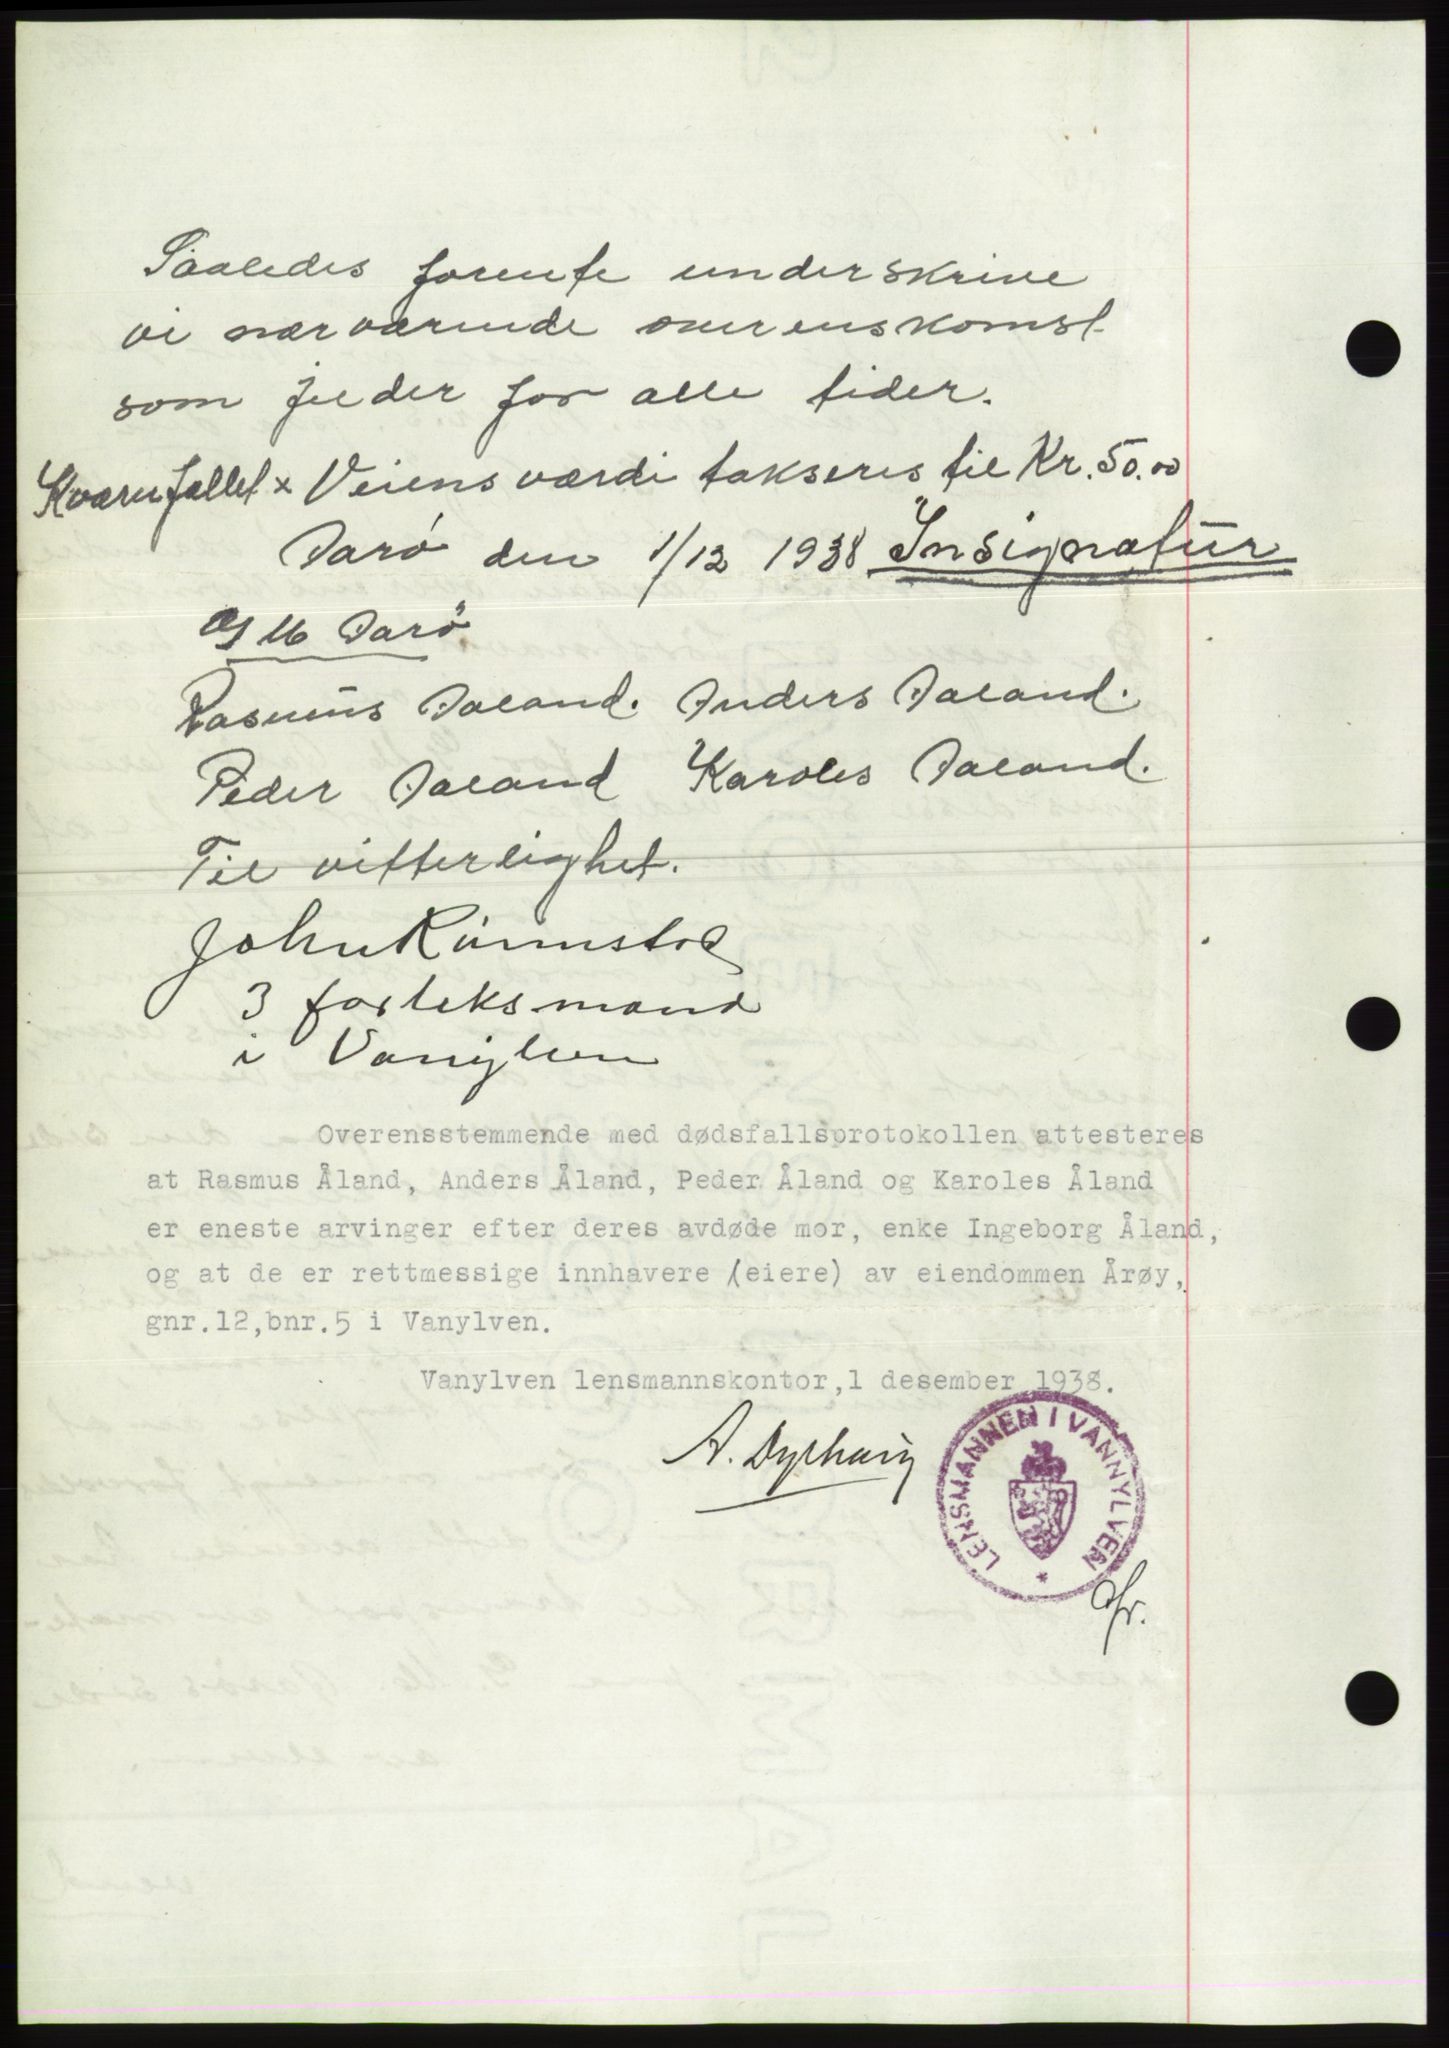 Saaledes forente underskrive
vi nærværende overenskomst
som jelder for alle tider.
Kværnfallet x Veiens værdi takseres til Kr. 50.00
Aarö den 1/12 1938 Insignatur
M Aarö
Rasmus Aaland. Anders Aaland.
Peder Aaland Karoles Aaland.
Til vitterlighet.
John
3 forleksmand
i Vanylven
Overensstemmende med dødsfallsprotokollen attesteres
at Rasmus Åland, Anders Åland, Peder Åland og Karoles Åland
er eneste arvinger efter deres avdøde mor, enke Ingeborg Åland,
og at de er rettmessige innhavere (eiere) av eiendommen Årøy,
gnr.12,bnr.5 i Vanylven.
Vanylven lensmannskontor,1 desember 1938.
A.
LENSMANNEN I VANNYLVEN